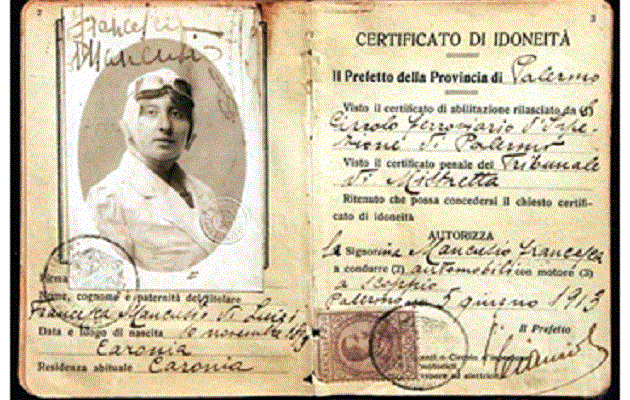 2
Francesca
Mancusio
Firma
Nome, cognome e paternità del titolare
Francesca Mancusio di Luigi
Data e luogo di nascita 10 novembre 1893
Caronia
Residenza abituale Caronia
3
CERTIFICATO DI IDONEITÀ
Il Prefetto della Provincia di Palermo
Visto il certificato di abilitazione rilasciato da
Circolo ferroviario d'Ispe-
zione di Palermo
Visto il certificato penale del Tribunale
di Mistretta
Ritenuto che possa concedersi il chiesto certifi-
cato di idoneità
AUTORIZZA
la Signorina Mancusio Francesca
a condurre (2) automobili con motore (3)
a scoppio
Palermo 5 giugno 1913
Il Prefetto